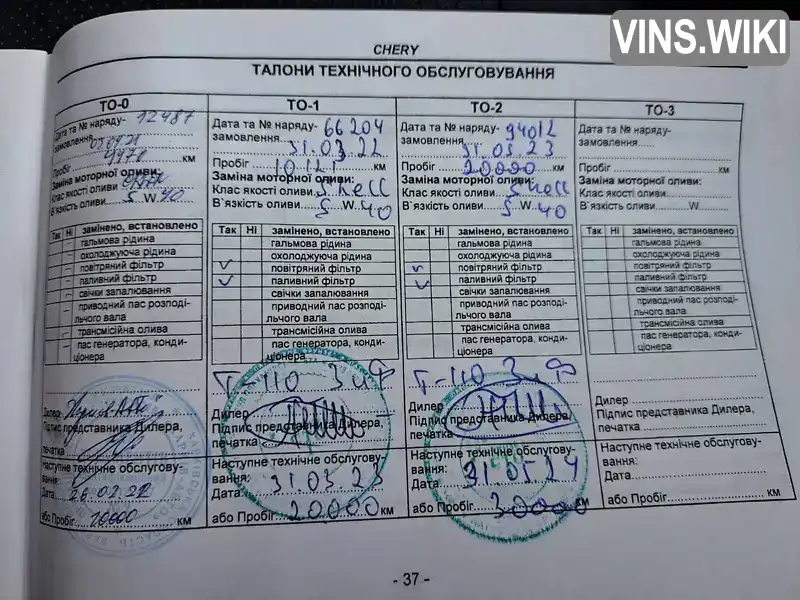 VINS.WIKI
CHERY
ТАЛОНИ ТЕХНІЧНОГО ОБСЛУГОВУВАННЯ
ТО-0
Дата та № наряду- 12487
замовлення
Пробіг км
Заміна моторної оливи:
Клас якості оливи
В`язкість оливи 5 W 40
Так Ні замінено, встановлено
гальмова рідина
охолоджуюча рідина
повітряний фільтр
паливний фільтр
свічки запалювання
приводний пас розподі-
льчого вала
трансмісійна олива
пас генератора, конди-
ціонера
Дилер
Підпис представника Дилера,
печатка
Наступне технічне обслугову-
вання:
Дата 26.02.22
або Пробіг 10000 км
ТО-1
Дата та № наряду- 66204
замовлення 31.03.22
Пробіг 10121 км
Заміна моторної оливи:
Клас якості оливи Shell
В`язкість оливи 5 W 40
Так Ні замінено, встановлено
гальмова рідина
охолоджуюча рідина
повітряний фільтр
паливний фільтр
свічки запалювання
приводний пас розподі-
льчого вала
трансмісійна олива
пас генератора, конди-
ціонера
Т-110
Дилер
Підпис представника Дилера,
печатка
Наступне технічне обслугову-
вання:
Дата 31.03 23
або Пробіг 20000 км
ТО-2
Дата та № наряду- 94012
замовлення 31.03 23
Пробіг 20000 км
Заміна моторної оливи:
Клас якості оливи Shell
В`язкість оливи 5 W 40
Так Ні замінено, встановлено
гальмова рідина
охолоджуюча рідина
повітряний фільтр
паливний фільтр
свічки запалювання
приводний пас розподі-
льчого вала
трансмісійна олива
пас генератора, конди-
ціонера
Т-110
Дилер
Підпис представника Дилера,
печатка
Наступне технічне обслугову-
вання:
Дата 31.03 24
або Пробіг 30000 км
ТО-3
Дата та № наряду-
замовлення
Пробіг км
Заміна моторної оливи:
Клас якості оливи
В`язкість оливи W
Так Ні замінено, встановлено
гальмова рідина
охолоджуюча рідина
повітряний фільтр
паливний фільтр
свічки запалювання
приводний пас розподі-
льчого вала
трансмісійна олива
пас генератора, конди-
ціонера
Дилер
Підпис представника Дилера,
печатка
Наступне технічне обслугову-
вання:
Дата
або Пробіг км
- 37 -